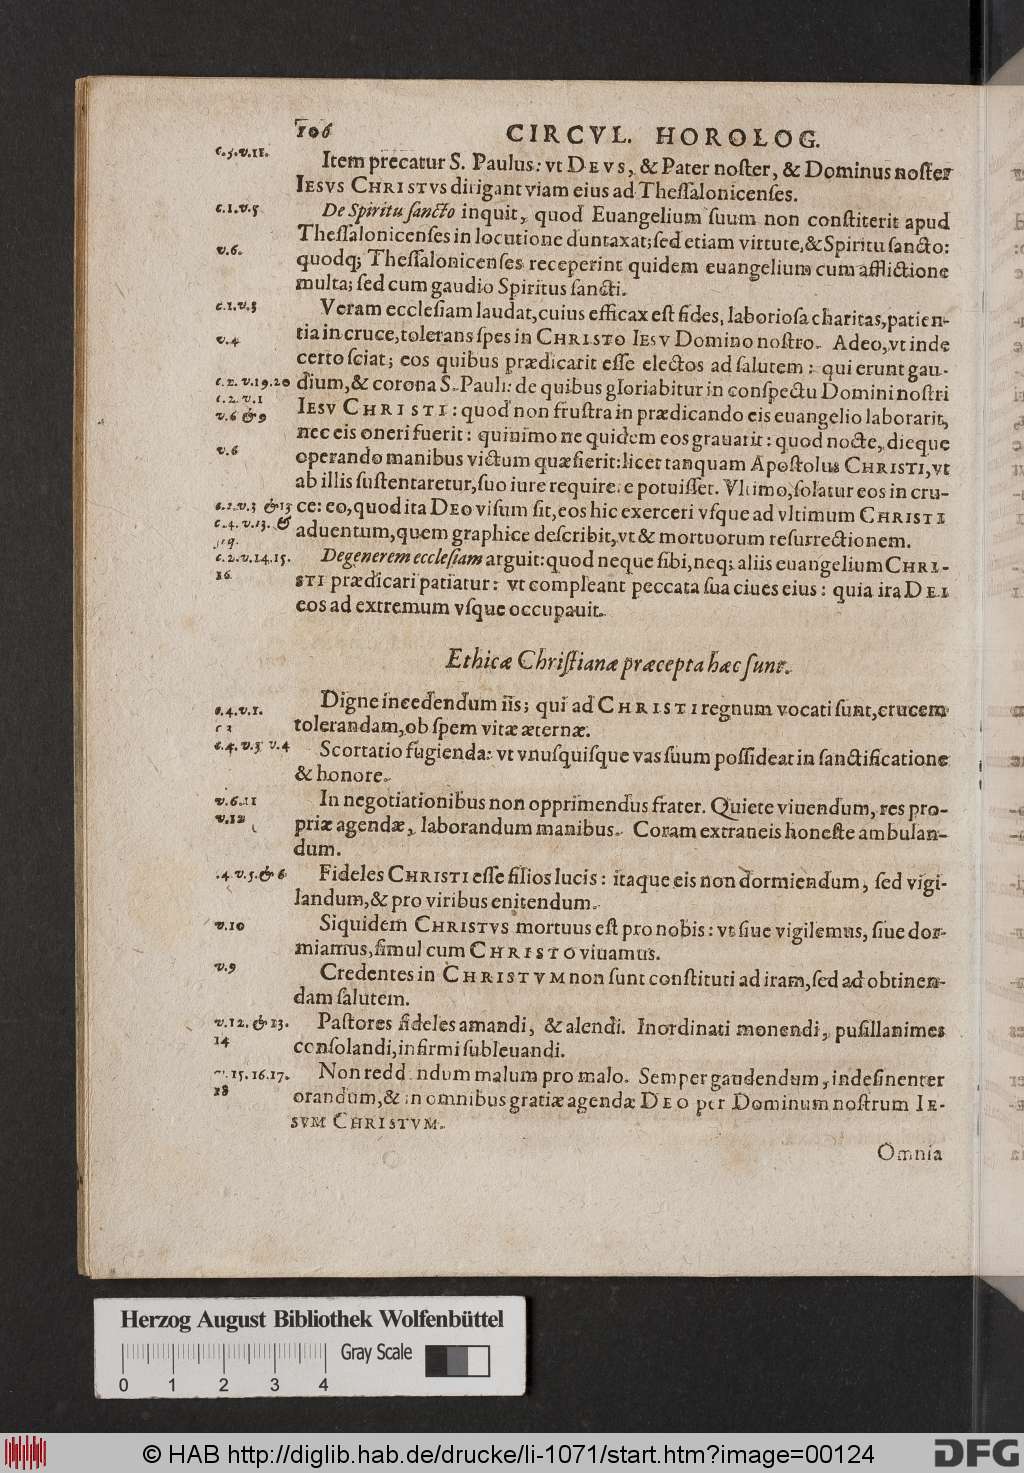 106 CIRCVL. HOROLOG.
c.3.v.11. Item precatur S. Paulus: vt DEVS, & Pater noſter, & Dominus noſter
IESVS CHRISTVS dirigant viam eius ad Theſſalonicenſes.
c.1.v.5 De Spiritu ſancto inquit, quod Euangelium ſuum non conſtiterit apud
Theſſalonicenſes in locutione duntaxat; ſed etiam virtute, & Spiritu ſancto:
v.6. quodq; Theſſalonicenſes receperint quidem euangelium cum afflictione
multa; ſed cum gaudio Spiritus ſancti.
c.1.v.3 Veram eccleſiam laudat, cuius efficax eſt fides, laborioſa charitas, patien-
v.4 tia in cruce, tolerans ſpes in CHRISTO IESV Domino noſtro. Adeo, vt inde
certo ſciat; eos quibus prædicarit eſſe electos ad ſalutem: qui erunt gau-
c.2.v.19.20 dium, & corona S. Pauli: de quibus gloriabitur in conſpectu Domini noſtri
c.2.v.1
v.6 & 9 IESV CHRISTI: quod non fruſtra in prædicando eis euangelio laborarit,
nec eis oneri fuerit: quinimo ne quidem eos grauarit: quod nocte, dieque
v.6 operando manibus victum quæſierit: licet tanquam Apoſtolus CHRISTI, vt
ab illis ſuſtentaretur, ſuo iure requirere potuiſſet. Vltimo, ſolatur eos in cru-
c.2.v.3 & 13 ce: eo, quod ita DEO viſum ſit, eos hic exerceri vſque ad vltimum CHRISTI
c.4.v.13. & aduentum, quem graphice deſcribit, vt & mortuorum reſurrectionem.
ſeq.
c.2.v.14.15. Degenerem eccleſiam arguit: quod neque ſibi, neq; aliis euangelium CHRI-
16. STI prædicari patiatur: vt compleant peccata ſua ciues eius: quia ira DEI
eos ad extremum vſque occupauit.
Ethicæ Chriſtianæ præcepta hæc ſunt.
c.4.v.1. Digne incedendum iis; qui ad CHRISTI regnum vocati ſunt, crucem
tolerandam, ob ſpem vitæ æternæ.
c.4.v.3 v.4 Scortatio fugienda: vt vnuſquiſque vas ſuum poſſideat in ſanctificatione
& honore.
v.6.11 In negotiationibus non opprimendus frater. Quiete viuendum, res pro-
v.12 priæ agendæ, laborandum manibus. Coram extraneis honeſte ambulan-
dum.
.4 v.5.& 6 Fideles CHRISTI eſſe filios lucis: itaque eis non dormiendum, ſed vigi-
landum, & pro viribus enitendum.
v.10 Siquidem CHRISTVS mortuus eſt pro nobis: vt ſiue vigilemus, ſiue dor-
miamus, ſimul cum CHRISTO viuamus.
v.9 Credentes in CHRISTVM non ſunt conſtituti ad iram, ſed ad obtinen-
dam ſalutem.
v.12. & 13. Paſtores fideles amandi, & alendi. Inordinati monendi, puſillanimes
14 conſolandi, infirmi ſubleuandi.
v.15.16.17. Non reddendum malum pro malo. Semper gaudendum, indeſinenter
18 orandum, & in omnibus gratiæ agendæ DEO per Dominum noſtrum IE-
SVM CHRISTVM.
Omnia
Herzog August Bibliothek Wolfenbüttel
Gray Scale
0 1 2 3 4
© HAB http://diglib.hab.de/drucke/li-1071/start.htm?image=00124
DFG